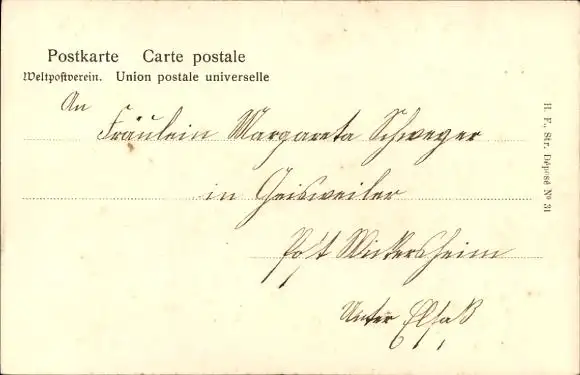 Postkarte Carte postale
Weltpostverein. Union postale universelle
An
Fräulein Margareta Schweyer
in Geisweiler
Post Wickersheim
Unter Elsaß
H. F., Str. Déposé Nº 31